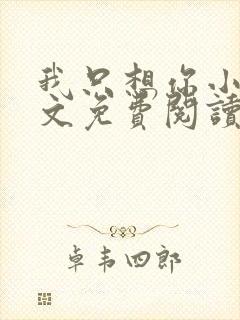 我只想你小
文免費閱讀
卓韦四郎